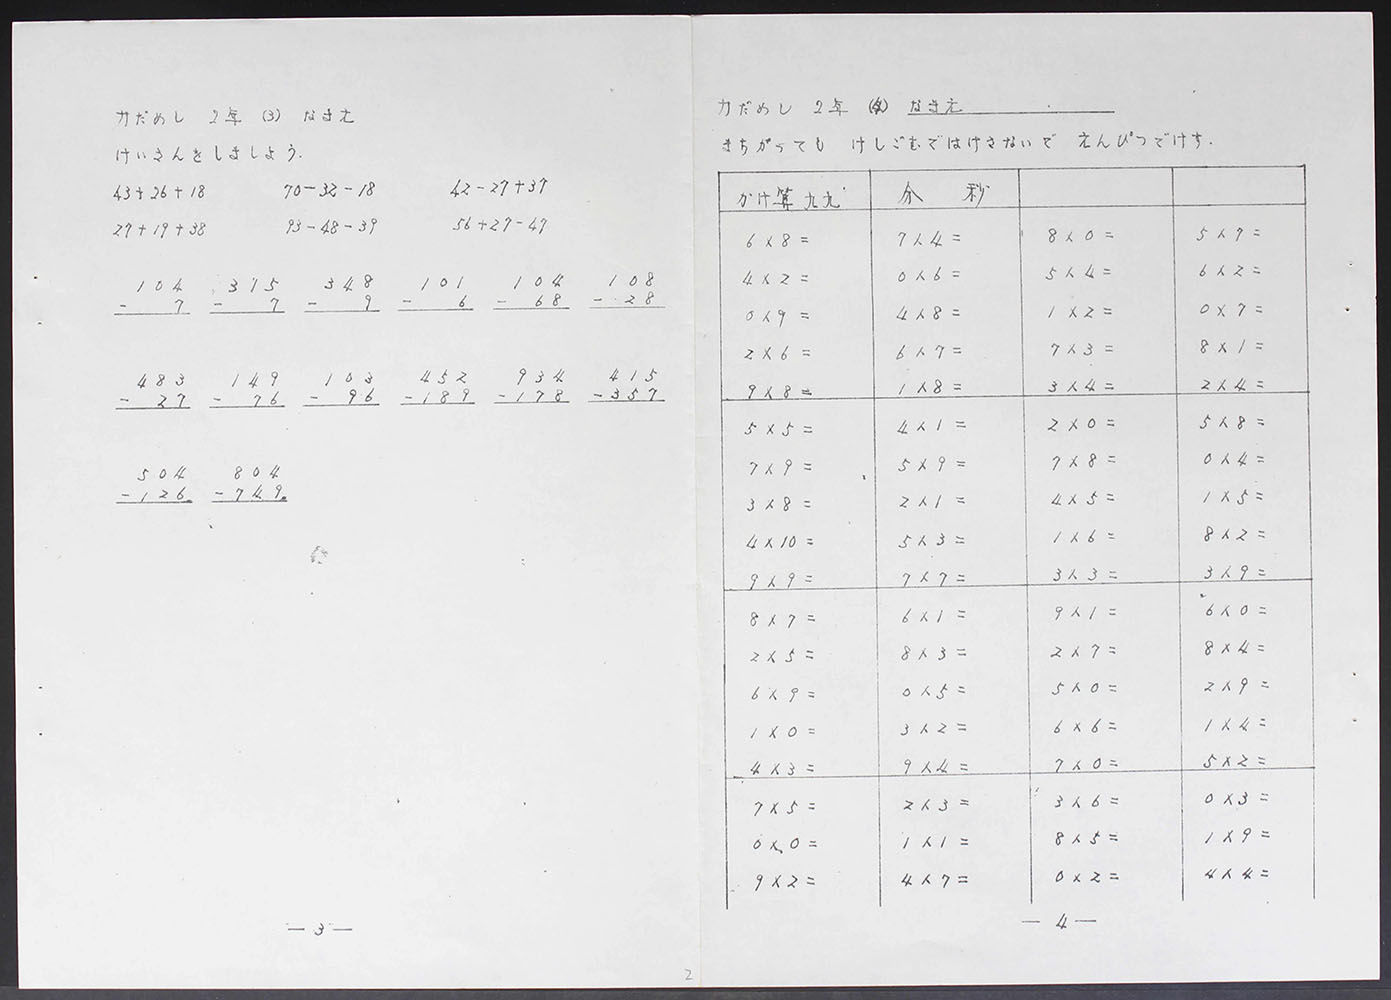 力だめし 2年 (3) なまえ
けいさんをしましょう.
43+26+18 70-32-18 42-27+37
27+19+38 93-48-39 56+27-47
104 315 348 101 104 108
-7 -7 -9 -6 -68 -28
483 149 103 452 934 415
-27 -76 -96 -189 -178 -357
504 804
-126 -749
-3-
2
力だめし 2年 (4) なまえ
まちがっても けしごむではけさないで えんぴつでけす.
かけ算九九 分 秒
6×8= 7×4= 8×0= 5×7=
4×2= 0×6= 5×4= 6×2=
0×9= 4×8= 1×2= 0×7=
2×6= 6×7= 7×3= 8×1=
9×8= 1×8= 3×4= 2×4=
5×5= 4×1= 2×0= 5×8=
7×9= 5×9= 7×8= 0×4=
3×8= 2×1= 4×5= 1×5=
4×10= 5×3= 1×6= 8×2=
9×9= 7×7= 3×3= 3×9=
8×7= 6×1= 9×1= 6×0=
2×5= 8×3= 2×7= 8×4=
6×9= 0×5= 5×0= 2×9=
1×0= 3×2= 6×6= 1×4=
4×3= 9×4= 7×0= 5×2=
7×5= 2×3= 3×6= 0×3=
0×0= 1×1= 8×5= 1×9=
9×2= 4×7= 0×2= 4×4=
-4-